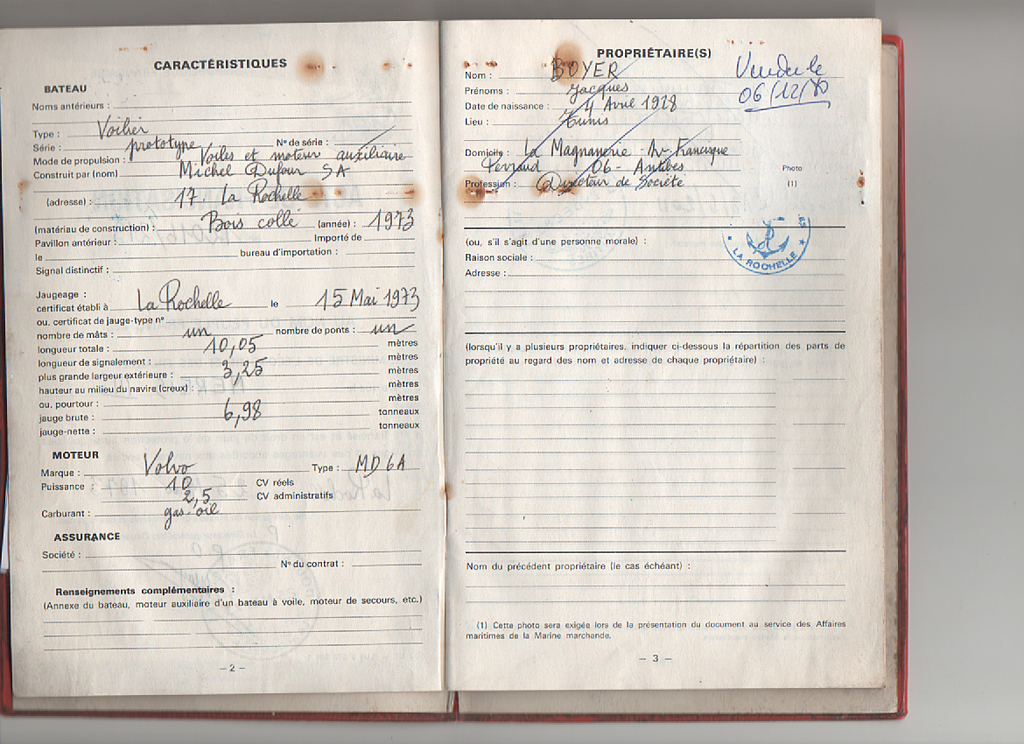 CARACTÉRISTIQUES
BATEAU
Noms antérieurs :
Type : Voilier
Série : prototype N° de série :
Mode de propulsion : Voiles et moteur auxiliaire
Construit par (nom) Michel Dufour SA
(adresse) : 17. La Rochelle
(matériau de construction) : Bois collé (année) : 1973
Pavillon antérieur : Importé de
le bureau d'importation :
Signal distinctif :
Jaugeage :
certificat établi à La Rochelle le 15 Mai 1973
ou, certificat de jauge-type n°
nombre de mâts : un nombre de ponts : un
longueur totale : 10,05 mètres
longueur de signalement : mètres
plus grande largeur extérieure : 3,25 mètres
hauteur au milieu du navire (creux) : mètres
ou, pourtour : mètres
jauge brute : 6,98 tonneaux
jauge-nette : tonneaux
MOTEUR
Marque : Volvo Type : MD 6A
Puissance : 10 CV réels
2,5 CV administratifs
Carburant : gas-oil
ASSURANCE
Société :
N° du contrat :
Renseignements complémentaires :
(Annexe du bateau, moteur auxiliaire d'un bateau à voile, moteur de secours, etc.)
— 2 —
PROPRIÉTAIRE(S)
Vendu le
06/12/80
Nom : BOYER
Prénoms : Jacques
Date de naissance : 4 Avril 1928
Lieu : Tunis
Domicile : La Magnanerie - Av. Francisque
Perraud 06 - Antibes
Profession : Directeur de Société
Photo
(1)
LA ROCHELLE
(ou, s'il s'agit d'une personne morale) :
Raison sociale :
Adresse :
(lorsqu'il y a plusieurs propriétaires, indiquer ci-dessous la répartition des parts de
propriété au regard des nom et adresse de chaque propriétaire) :
Nom du précédent propriétaire (le cas échéant) :
(1) Cette photo sera exigée lors de la présentation du document au service des Affaires
maritimes de la Marine marchande.
— 3 —